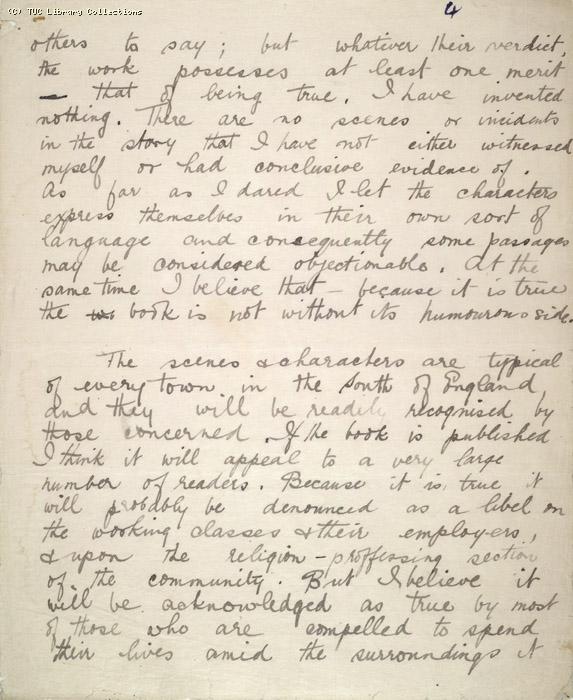 (C) TUC Library Collections
4
others to say; but whatever their verdict,
the work possesses at least one merit
— that of being true. I have invented
nothing. There are no scenes or incidents
in the story that I have not either witnessed
myself or had conclusive evidence of.
As far as I dared I let the characters
express themselves in their own sort of
language and consequently some passages
may be considered objectionable. At the
same time I believe that – because it is true
the book is not without its humourous side.
The scenes & characters are typical
of every town in the South of England
and they will be readily recognised by
those concerned. If the book is published
I think it will appeal to a very large
number of readers. Because it is true it
will probably be denounced as a libel on
the working classes & their employers,
& upon the religion – proffessing section
of the community. But I believe it
will be acknowledged as true by most
of those who are compelled to spend
their lives amid the surroundings it